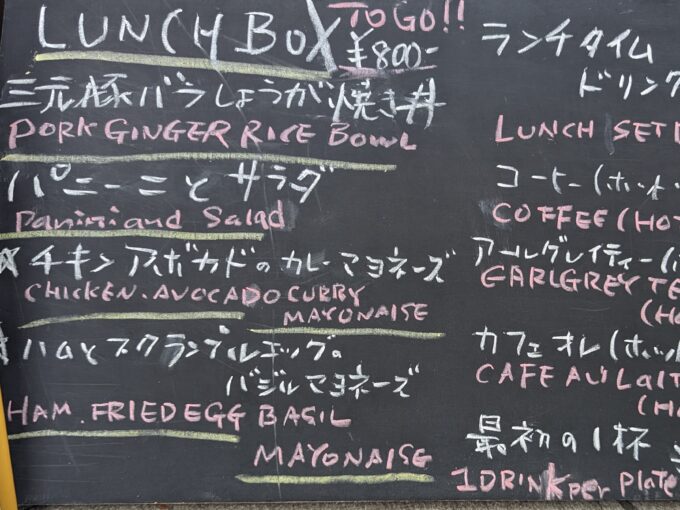 LUNCH BOX TO GO!!
¥800-
三元豚バラしょうが焼き丼
PORK GINGER RICE BOWL
パニーニとサラダ
Panini and Salad
☆チキンアボカドのカレーマヨネーズ
CHICKEN.AVOCADO CURRY
MAYONAISE
ハムとスクランブルエッグ。
バジルマヨネーズ
HAM.FRIED EGG BASIL
MAYONAISE
ランチタイム
ドリンク
LUNCH SET
コーヒー(ホット
COFFEE (HO
アールグレイティー(
EARLGREY TE
(H
カフェオレ(ホット
CAFE AU LAIT
(H
最初の1杯
1DRINK per Plate